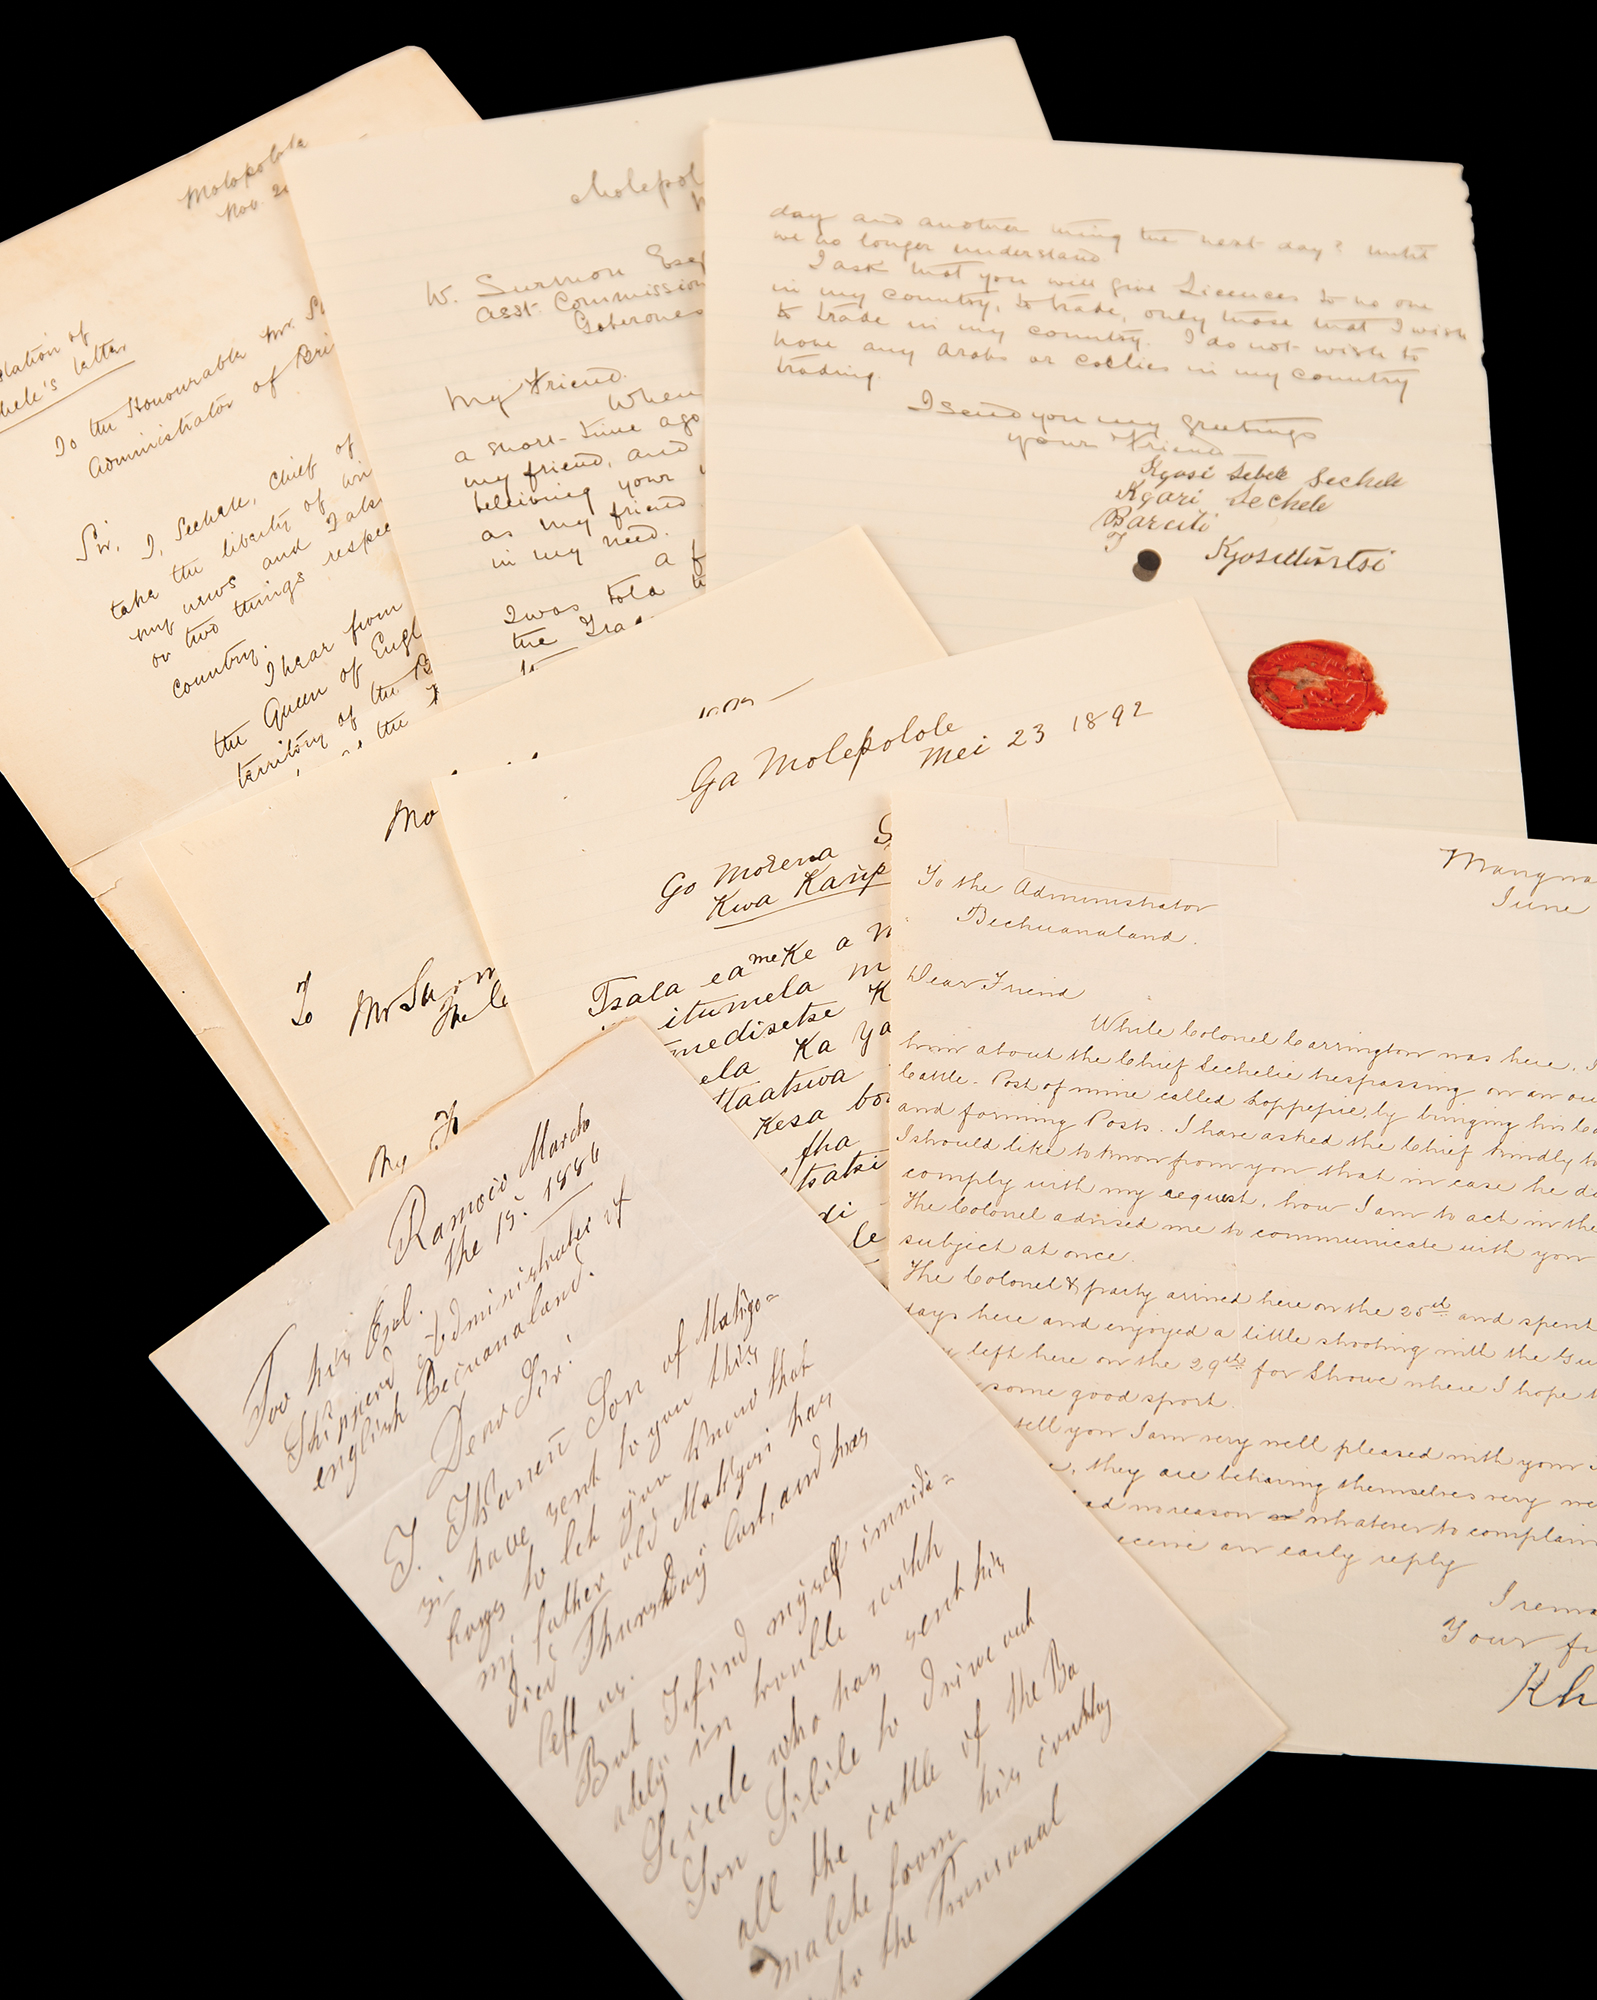 Molopolole
Nov. 2
slation of
hele's letter
To the Honourable Mr. Sh
Administrator of Bri
Sir. I, Sechele, Chief of
take the liberty of wri
my news and I als
or two things respec
country.
I hear from
the Queen of Engl
territory of the B
the
Molepol
W. Surmon Esq
Asst. Commission
Gaberones
My Friend.
When
a short-time ago
my friend, and
believing your
as my friend
in my need.
a f
I was told
the Tra
to
day and another thing the next day? until
we no longer understand
I ask that you will give Licences to no one
in my country, to trade, only those that I wish
to trade in my country. I do not wish to
have any Arabs or coolies in my country
trading.
I send you my greetings
your Friend
Kgosi Sebele Sechele
Kgari Sechele
Baruti
Mo
To Mr Surm
My F
Ga Molepolole
Mei 23 1892
Go Morena S
Kwa Kanye
Tsala ea me Ke a
itumela m
medisetse K
ela Ka ya
tlaatswa
Kesa bo
tha
tsatsi
di
le
Mangwa
June
To the Administrator
Bechuanaland.
Dear Friend
While Colonel Carrington was here, I
him about the Chief Sechele trespassing on an ou
Cattle-Post of mine called Loppepie, by bringing his Ca
and forming Posts. I have asked the Chief kindly to
I should like to know from you that in case he do
comply with my request, how I am to act in the
The Colonel advised me to communicate with you
subject at once.
The Colonel & party arrived here on the 25th and spent
days here and enjoyed a little shooting with the Gu
left here on the 29th for Showe where I hope t
some good sport.
tell you I am very well pleased with your
they are behaving themselves very we
ad no reason whatever to complain
eceive an early reply
I rema
Your fr
Kh
Ramoic March
the 15. 1886
Too his Exel.
Shippard Administrater of
english Becuanaland.
Dear Sir!
I. Ikanen Son of Matlgo=
si have sent to you this
boys to let you know that
mi father old Matlgosi has
died Thursday last, and has
left us.
But I find myself immidi=
ately in trouble with
Secele who has sent his
Son Sibile to drive out
all the cattle of the Ba
malete from his country
to the Transvaal